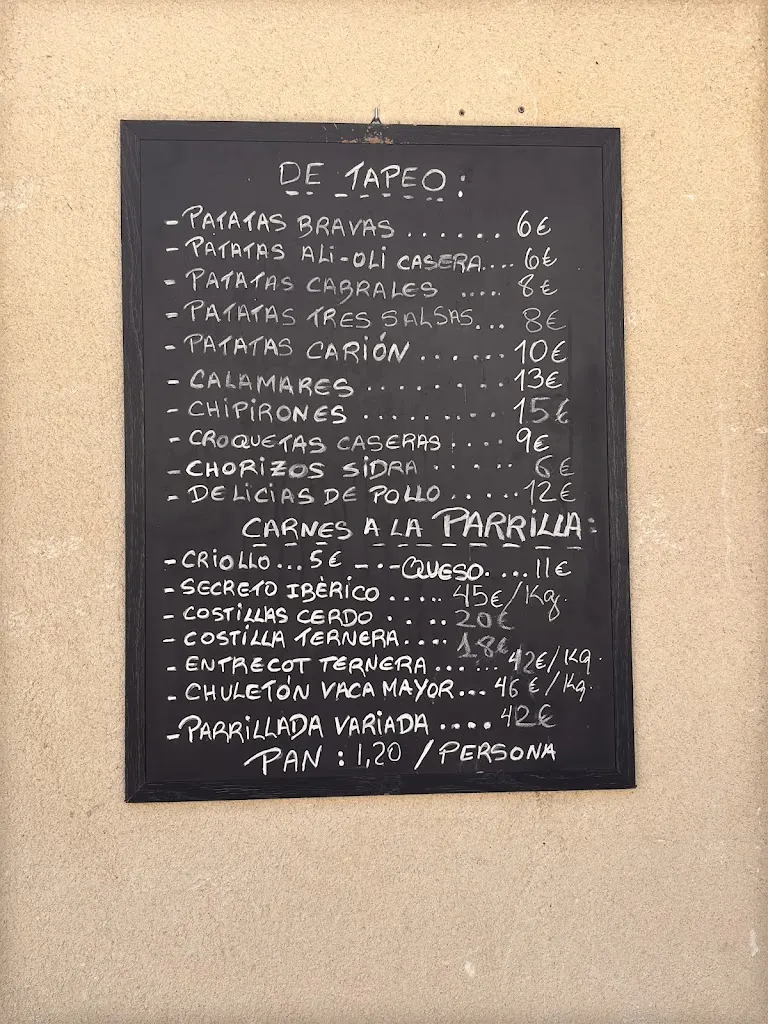 DE TAPEO:
- PATATAS BRAVAS ...... 6€
- PATATAS ALI-OLI CASERA.... 6€
- PATATAS CABRALES .... 8€
- PATATAS TRES SALSAS... 8€
- PATATAS CARIÓN ...... 10€
- CALAMARES ....... 13€
- CHIPIRONES ........ 15€
- CROQUETAS CASERAS .... 9€
- CHORIZOS SIDRA .... 6€
- DELICIAS DE POLLO ..... 12€
CARNES A LA PARRILLA:
- CRIOLLO... 5€ - - - QUESO. ... 11€
- SECRETO IBÈRICO ..... 45€/Kg.
- COSTILLAS CERDO . . .. 20€
- COSTILLA TERNERA.... 18€
- ENTRECOT TERNERA ...... 42€/Kg.
- CHULETÓN VACA MAYOR... 46€/Kg.
- PARRILLADA VARIADA .... 42€
PAN : 1,20 / PERSONA